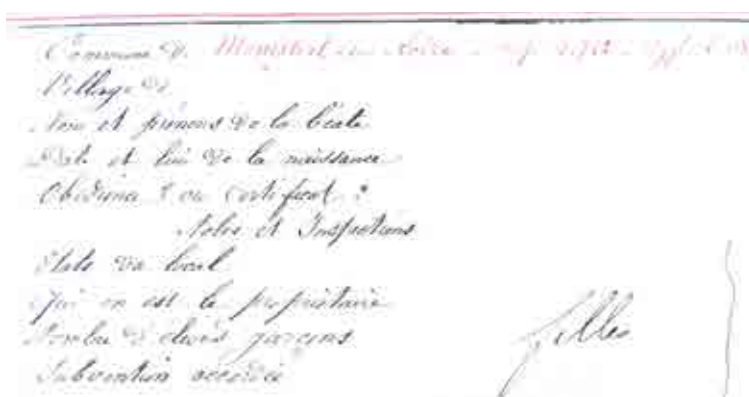 Commune de Monistrol sur Loire
Village de
Nom et prénoms de la béate
Date et lieu de la naissance
Obédience ? ou certificat ?
Notes et Inspections
État du local
Qui en est le propriétaire
Nombre d'élèves garçons filles
Subvention accordée